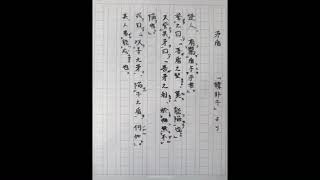 矛盾 「韓非子」より
楚人、有鬻盾与矛者。
誉之曰、「吾盾之堅、莫能陥也。」
又誉其矛曰、「吾矛之利、於物無不
陥也。」
或曰、「以子之矛、陥子之盾、何如。」
其人弗能応也。